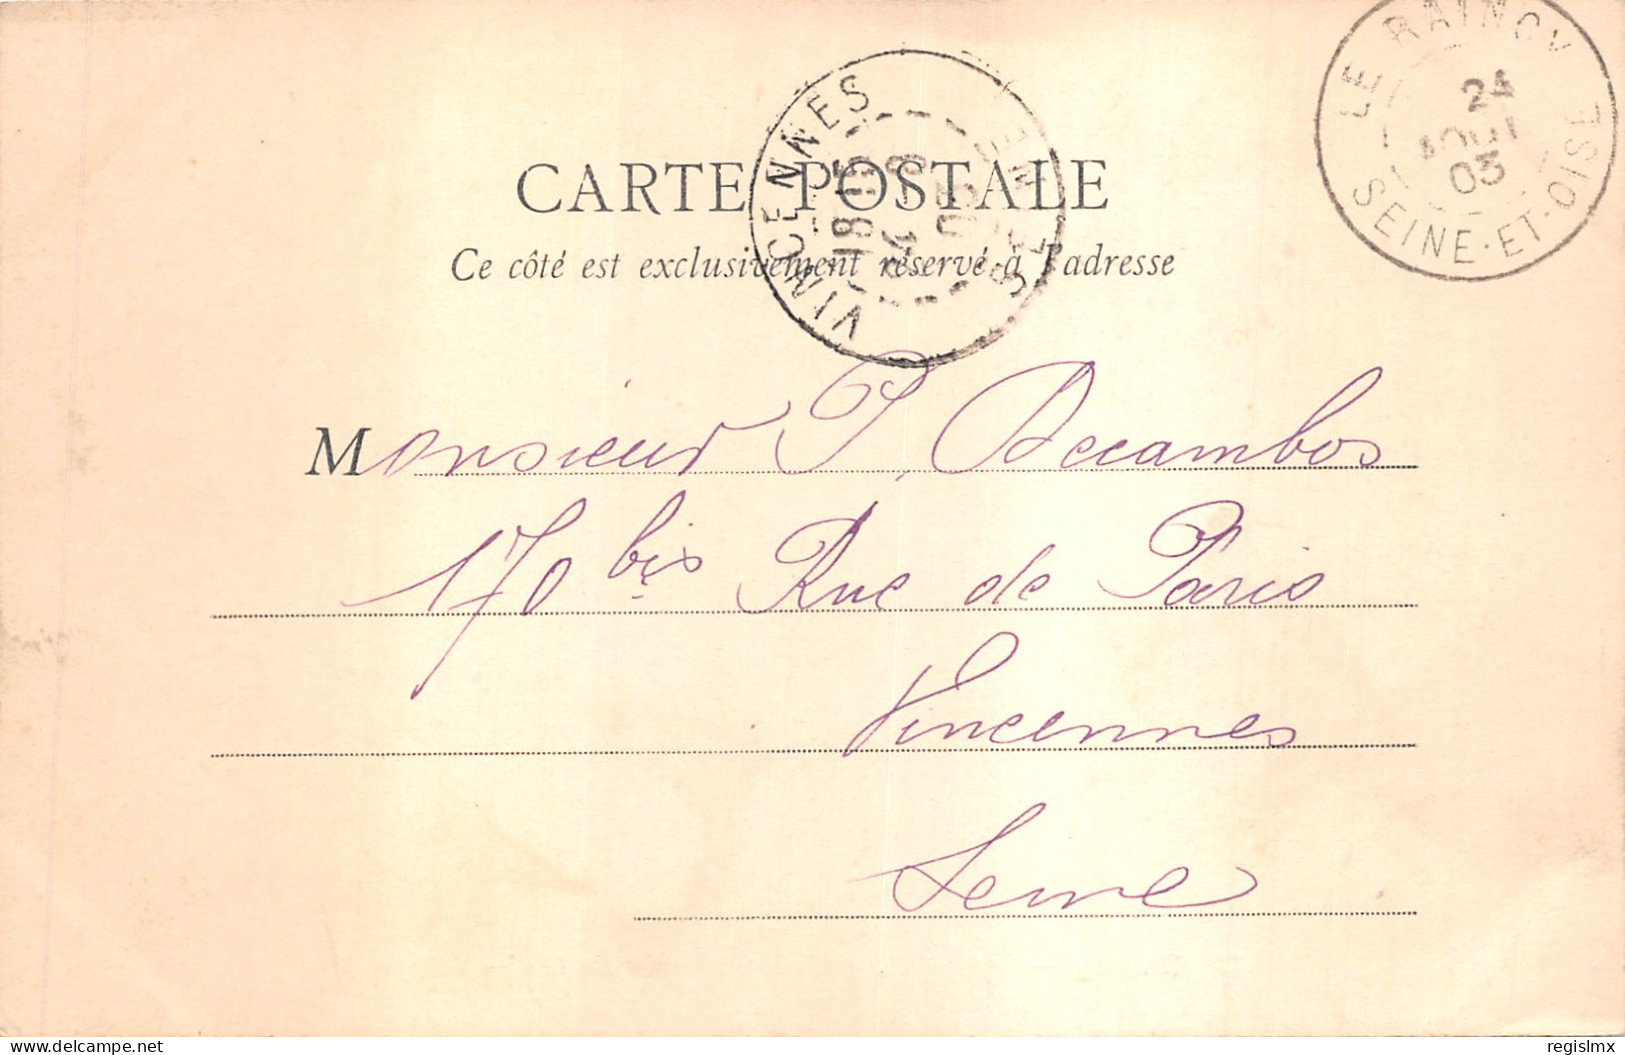 LE RAINCY
24
AOUT
03
SEINE-ET-OISE
VINCENNES
SEINE
CARTE POSTALE
Ce côté est exclusivement réservé à l'adresse
Monsieur P. Decambos
170 bis Rue de Paris
Vincennes
Seine
www.delcampe.net
regislmx